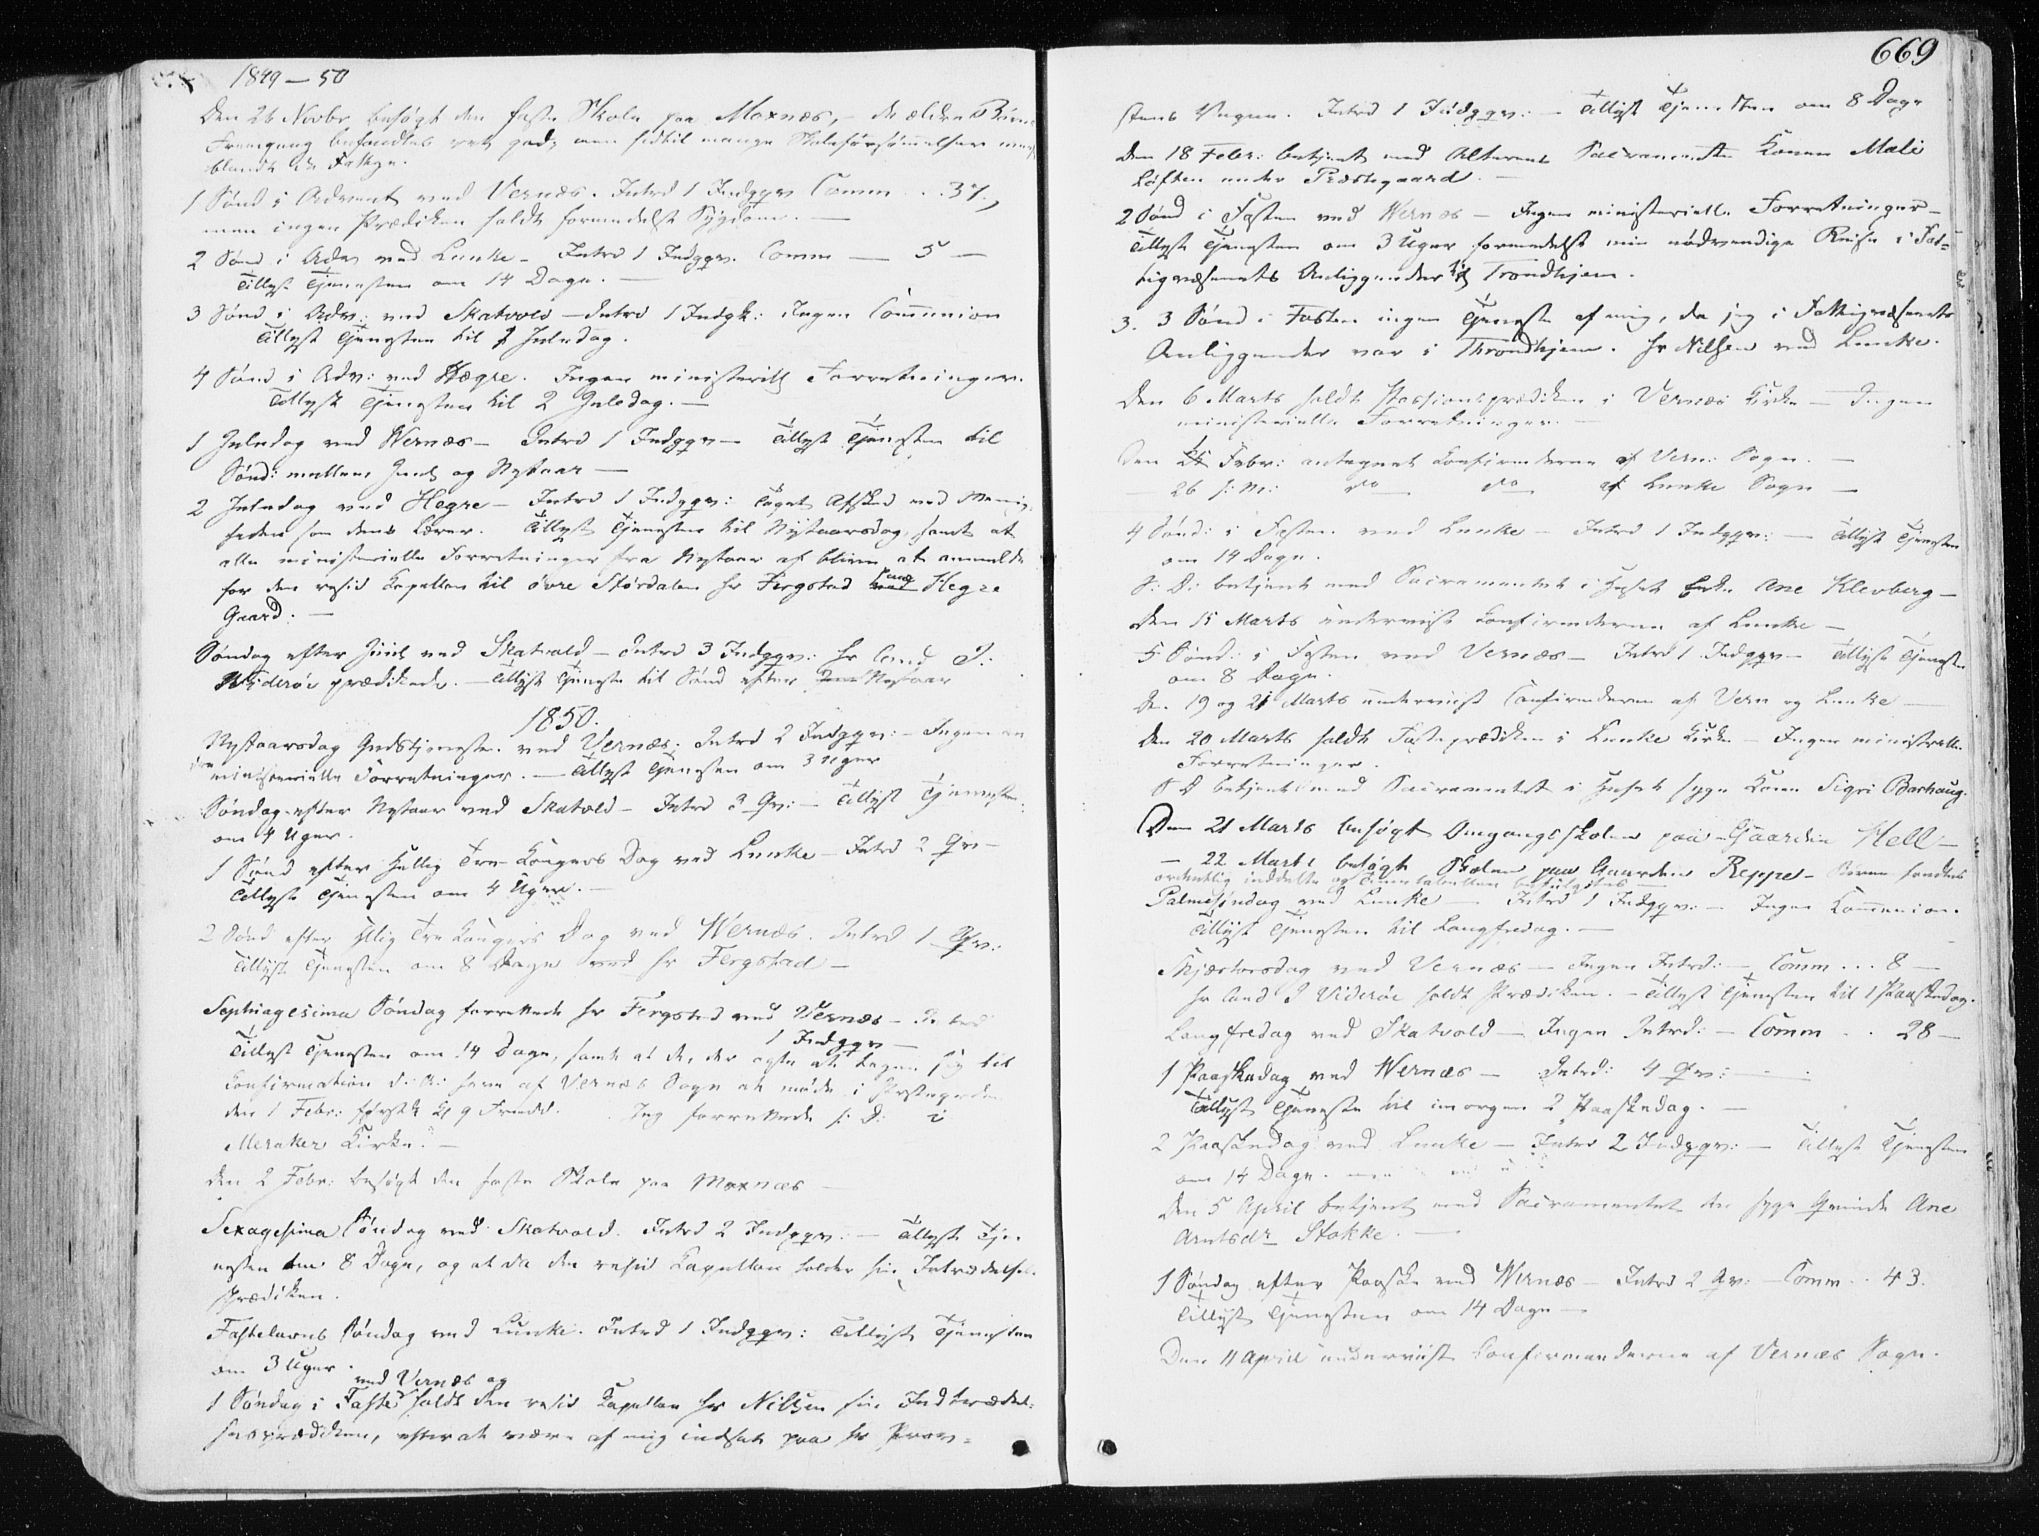 1849–50
Den 26 Novbr besøgt den faste Skole paa Moxnæs, – de ældre Børns
Fremgang befandtes ret god, men hidtil mange Skoleforsømmelser
blandt de Fattige.
1 Sønd i Advent ved Vernæs. Introd 1 Indggqv Comm . . 37,
men ingen Prædiken holdt formedelst Sygdom. —
2 Sønd i Adv ved Lunke – Introd 1 Indggqv. Comm — 5 —
Tillyst Tjenesten om 14 Dage. —
3 Sønd i Adv: ved Skatvold – Introd 1 Indgk: Ingen Communion
Tillyst Tjenesten til 1 Juledag.
4 Sønd i Adv: ved Hegre. Ingen ministeriell Forretninger.
Tillyst Tjenesten til 2 Juledag. —
1 Juledag ved Wernæs – Introd 1 Indggqv – Tillyst Tjenesten til
Sønd: mellem Juul og Nytaar —
2 Juledag ved Hegre – Introd 1 Indggqv: Taget Afsked med Menig-
heden som dens Lærer. Tillyst Tjenesten til Nytaarsdag, samt at
alle ministerielle Forretninger fra Nytaar af bliver at anmelde
for den resid Kapellan til övre Størdalen Hr Fergstad paa Hegre
Gaard. —
Søndag efter Juul ved Skatvold – Introd 3 Indggqv: Hr Cand J:
Widerøe prædikede. – Tillyst Tjeneste til Sønd efter Nytaar
1850.
Nytaarsdag Gudstjeneste ved Vernæs: Introd 2 Indggqv: – Ingen an
dre ministerielle Forretninger. – Tillyst Tjenesten om 3 Uger
Søndag efter Nytaar ved Skatvold – Introd 3 Qv: – Tillyst Tjenesten
om 4 Uger.
1 Sønd efter Hellig Tre Kongers Dag ved Lunke – Introd 2 Qv –
Tillyst Tjenesten om 4 Uger. —
2 Sønd efter Hllig Tre Kongers Dag ved Wernæs. Introd 1 Qv:
Tillyst Tjenesten om 8 Dage ved Hr Fergstad —
Septuagesima Søndag forrettede Hr Fergstad ved Vernæs – Introd
1 Indggqv —
Tillyst Tjenesten om 14 Dage, samt at de, der agte at tegne sig til
Confirmation d: A: herre af Vernæs Sogn at møde i Prstegaarden
den 1 Febr: førstk Kl 9 Formd. Jeg forrettede s: D: i
Meraker Kirke. —
Den 2 Febr: besøgt den faste Skole paa Moxnæs —
Sexagesima Søndag ved Skatvold. Introd 2 Indggqv: – Tillyst Tje-
nesten om 8 Dage, og at da den resid Kapellan holder sin Introdelses-
Prædiken.
Fastelavns Søndag ved Lunke. Introd 1 Indggqv: Tillyst Tjenesten
om 3 Uger.
ved Vernæs og
1 Søndag i Faste holdt den resid Kapellan Hr Nilsen sin Indtrædel-
sesprædiken, efter at være af mig indsat paa Hr Prov-
669
stens Vegne. Introd 1 Indggqv: – Tillyst Tjenesten om 8 Dage
Den 18 Febr: betjent med Alterens Sacramente Konen Mali
Løften under Præstegaard. —
2 Sønd i Fasten ved Wernæs – Ingen ministerielle Forretninger –
Tillyst Tjenesten om 3 Uger formedelst min nødvendige Reise i Fat-
tigvæsenets Anliggender til Trondhjem.
3. 3 Sønd i Fasten ingen Tjeneste af mig, da jeg i Fattigvæsenets
Anliggender var i Throndhjem. Hr Nilsen ved Lunke.
Den 6 Marts holdt Passionsprædiken i Vernæs Kirke — Ingen
ministerielle Forretninger. —
Den 25 Febr: antegnet Konfirmderne af Vern: Sogn. —
26 s: M: do do af Lunke Sogn —
4 Sønd: i Fasten ved Lunke – Introd 1 Indggqv: – Tillyst Tjenesten
om 14 Dage.
S: D: betjent med Sacramentet i Huset Enke Ane Klevberg —
Den 15 Marts underviist Confirmderne af Lunke —
5 Sønd: i Fasten ved Vernæs – Introd 1 Indggqv – Tillyst Tjenesten
om 8 Dage.
Den 19 og 21 Marts underviist Confirmderne af Vern og Lunke —
Den 20 Marts holdt Fasteprædiken i Lunke Kirke – Ingen ministrielle
Forretninger.
S D betjent med Sacramentet i Huset syge Kone Sigri Barhaug.
Den 21 Marts besøgt Omgangsskolen paa Gaarden Hell –
— 22 Marts besøgt Skolen paa Gaarden Reppe – Børne fandtes
ordentlig inddelte og Timetabellen befulgtes —
Palmesøndag ved Lunke — Introd 1 Indggqv: – Ingen Communion.
Tillyst Tjenesten til Langfredag. —
Skjærtorsdag ved Vernæs — Ingen Introd: – Comm . . . 8 —
Hr Cand J Viderøe holdt Prædiken. – Tillyst Tjenesten til 1 Paaskedag.
Langfredag ved Skatvold – Ingen Introd: – Comm . . 28 —
1 Paaskedag ved Wernæs — Introd: 4 Qv: —
Tillyst Tjeneste til imorgen 2 Paaskedag. —
2 Paaskedag ved Lunke — Introd 2 Indggqv: – Tillyst Tjenesten
om 14 Dage.
Den 5 April betjent med Sacramentet den syge Qvinde Ane
Arntsdr Stokke. —
1 Søndag efter Paaske ved Wernæs – Introd 2 Qv: – Comm . . 43.
Tillyst Tjenesten om 14 Dage —
Den 11 April underviist Confirmanderne af Vernæs Sogn.